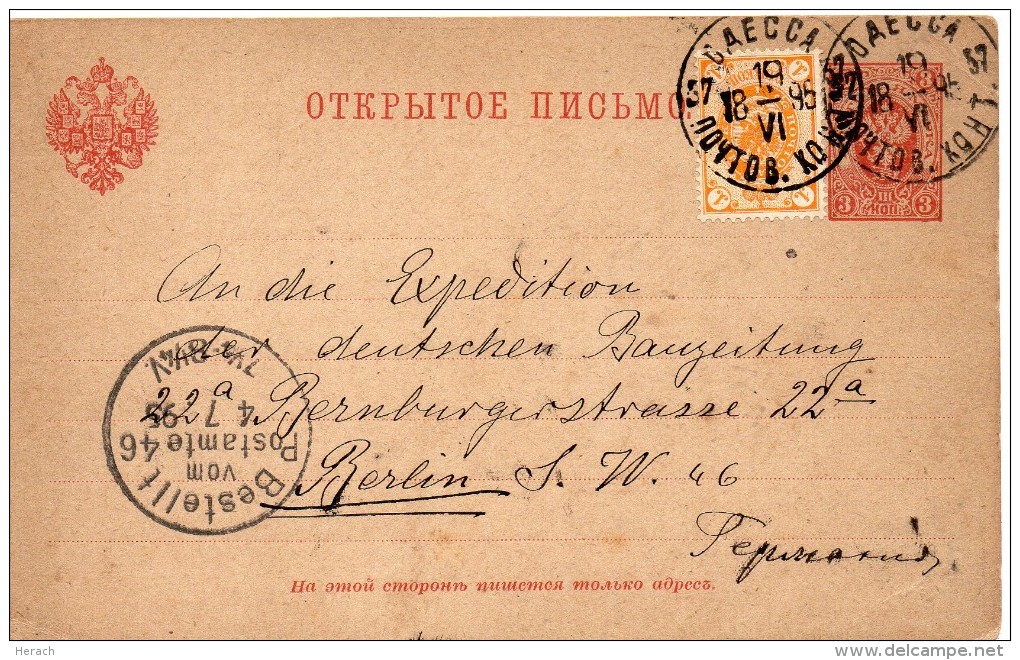 ОТКРЫТОЕ ПИСЬМО.
ОДЕССА
37 19 37
18 VI 95
ПОЧТОВ. КОН.
1
1
1
1
ОДЕССА
37 19 37
18 VI 95
ПОЧТОВ. КОН. 1
3
3 III 3
КОП.
An die Expedition
der deutschen Bauzeitung
22a Bernburgerstrasse 22a
Berlin S. W. 46
Германия
Bestellt
vom
Postamte 46
4 7 95
На этой сторонѣ пишется только адресъ.
Herach
www.delcampe.net